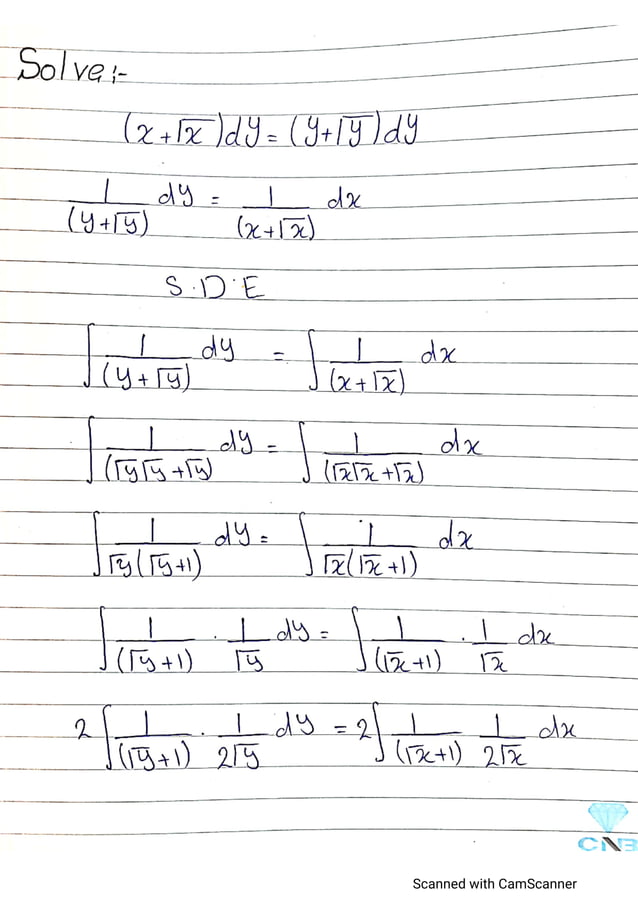 Solve:-
(x+√x)dy=(y+√y)dy
1/(y+√y) dy = 1/(x+√x) dx
S.D.E
∫ 1/(y+√y) dy = ∫ 1/(x+√x) dx
∫ 1/(√y√y+√y) dy = ∫ 1/(√x√x+√x) dx
∫ 1/√y(√y+1) dy = ∫ 1/√x(√x+1) dx
∫ 1/(√y+1) . 1/√y dy = ∫ 1/(√x+1) . 1/√x dx
2∫ 1/(√y+1) . 1/2√y dy = 2∫ 1/(√x+1) 1/2√x dx
CNB
Scanned with CamScanner